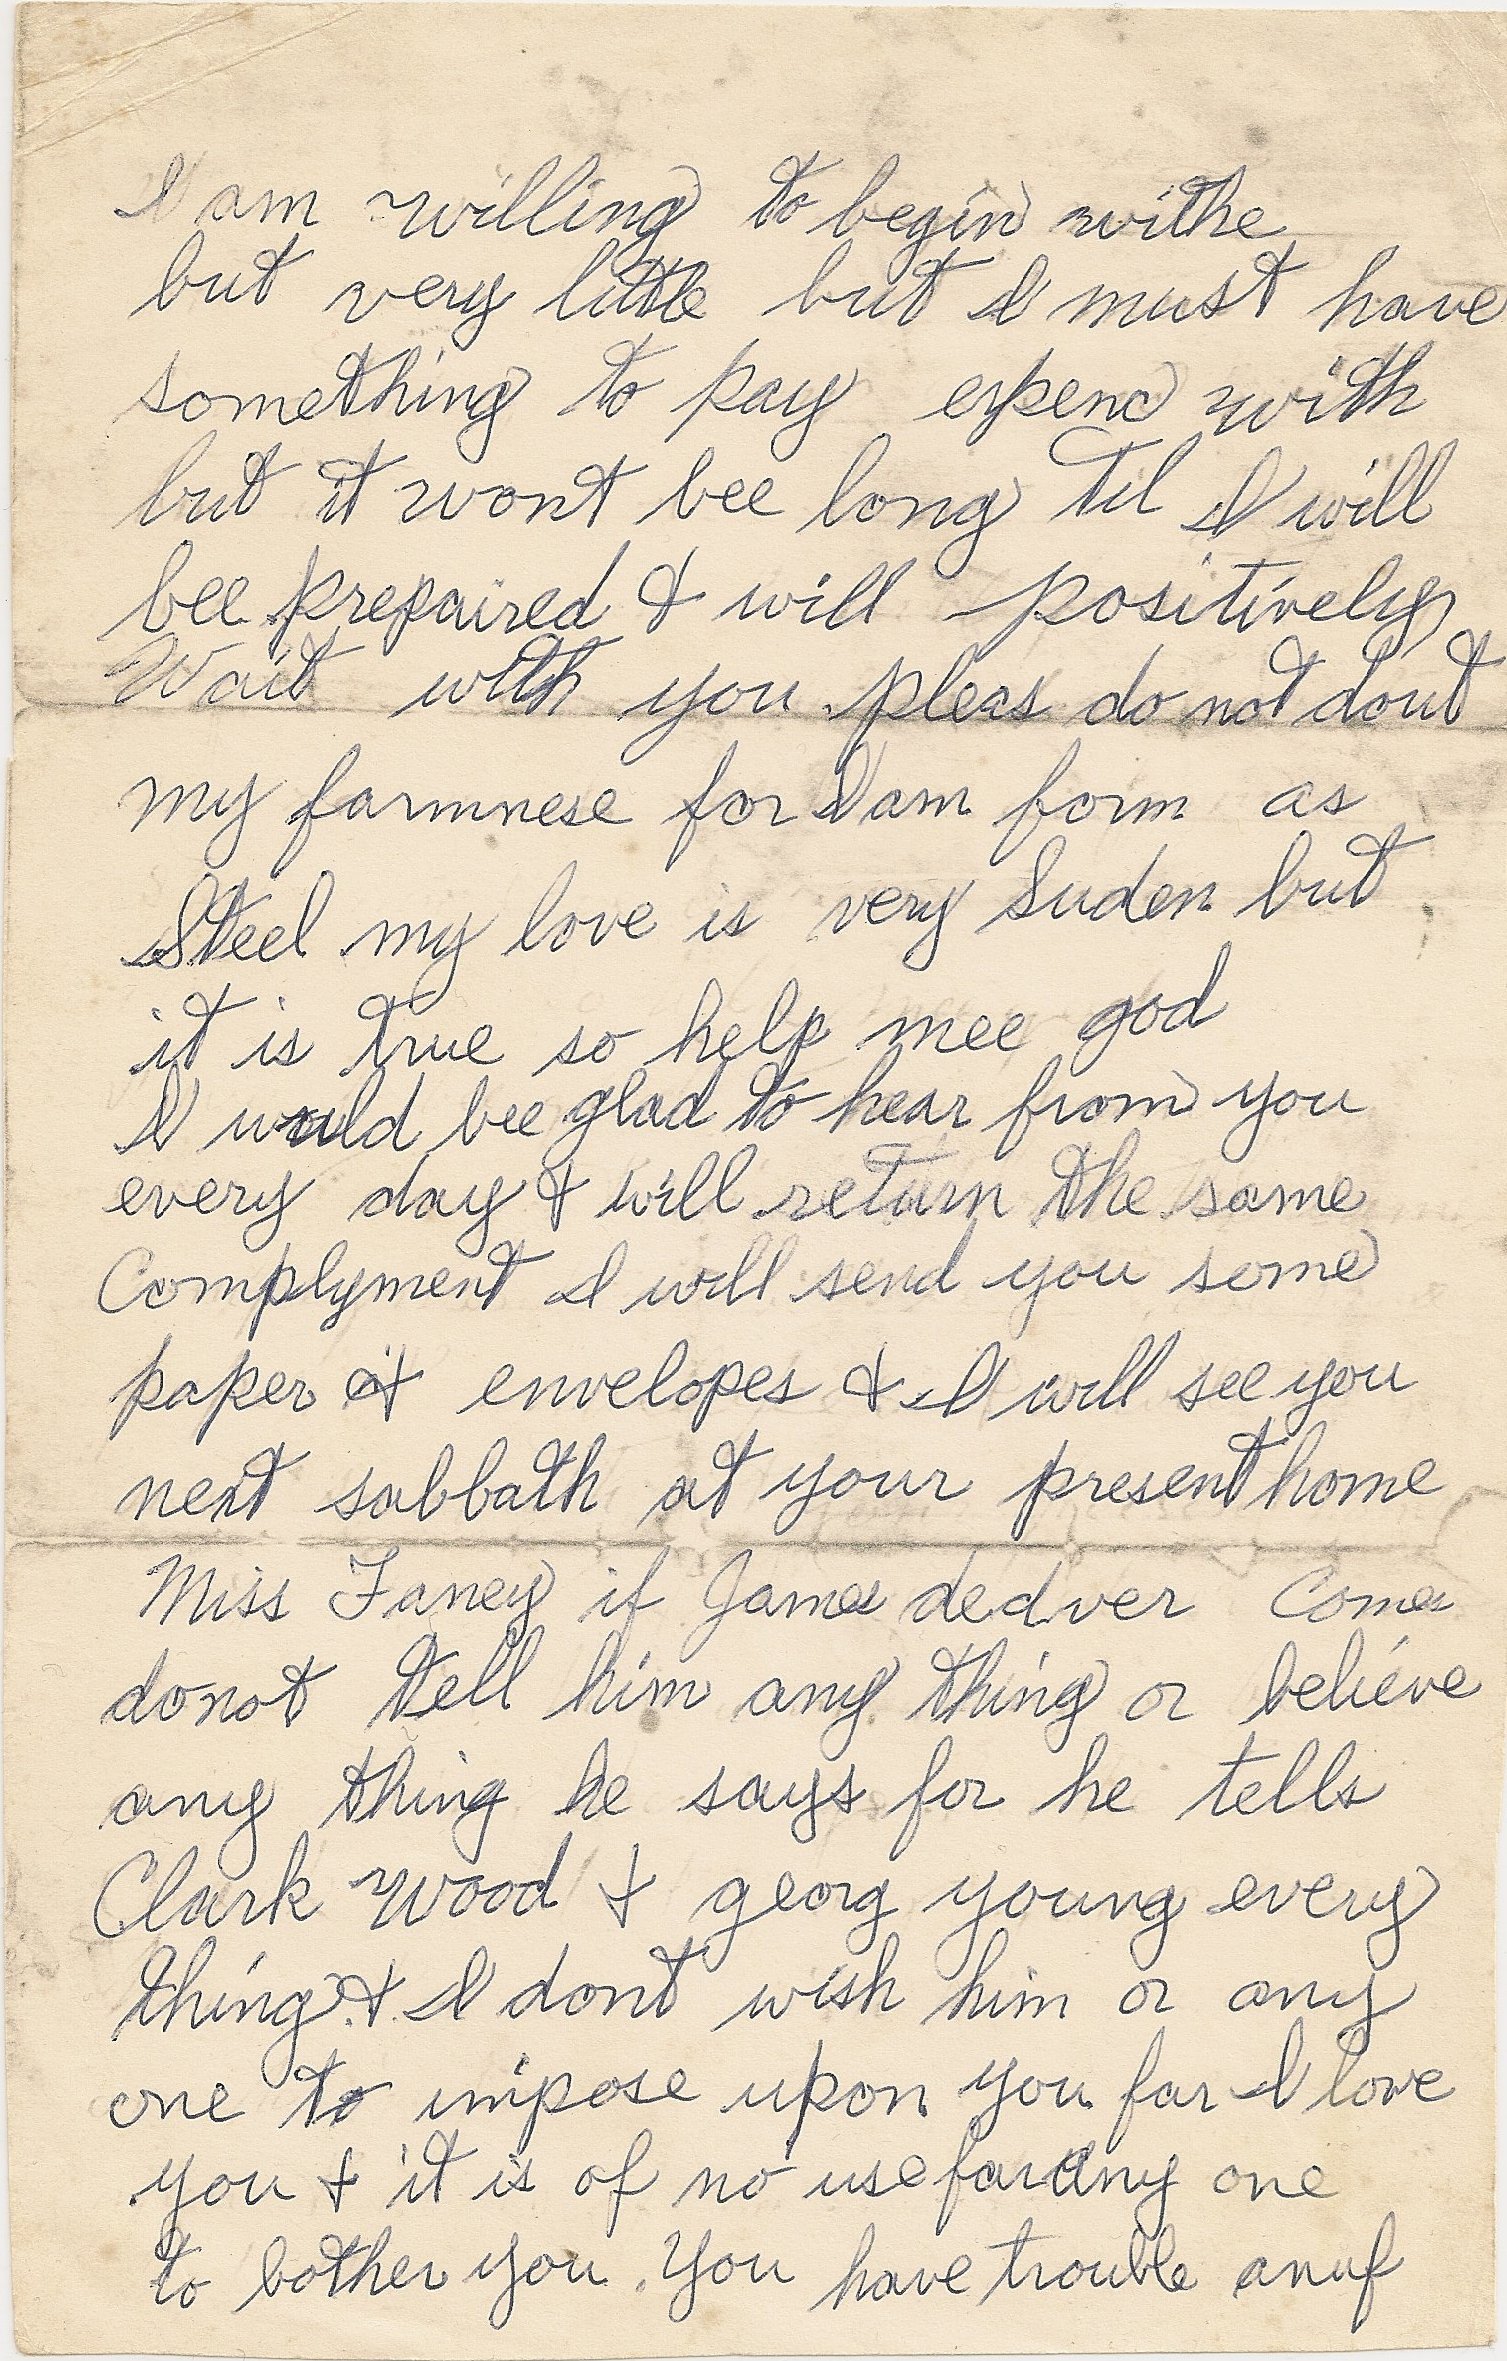 I am willing to begin withe
but very little but I must have
something to pay expenc with
but it wont bee long til I will
bee prepaired & will positively
Wait with you pleas do not dout
my farmnese for I am form as
Steel my love is very Suden but
it is true so help mee god
I would bee glad to hear from you
every day & will return the same
Complyment I will send you some
paper & envelopes & I will see you
next sabbath at your present home
Miss Faney if James dedver Comes
do not tell him any thing or believe
any thing he says for he tells
Clark Wood & georg young every
thing & I dont wish him or any
one to impose upon you far I love
you & it is of no use far any one
to bother you. You have trouble anuf